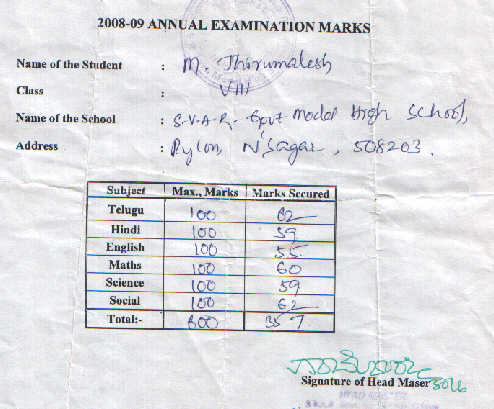 2008-09 ANNUAL EXAMINATION MARKS
Name of the Student : M. Thirumalesh
Class : VIII
Name of the School : S.V.A.R. Govt Model High School,
Address : Pylon, N'Sagar, 508203.
Subject Max., Marks Marks Secured
Telugu 100 62
Hindi 100 59
English 100 55
Maths 100 60
Science 100 59
Social 100 62
Total:- 600 357
Signature of Head Maser